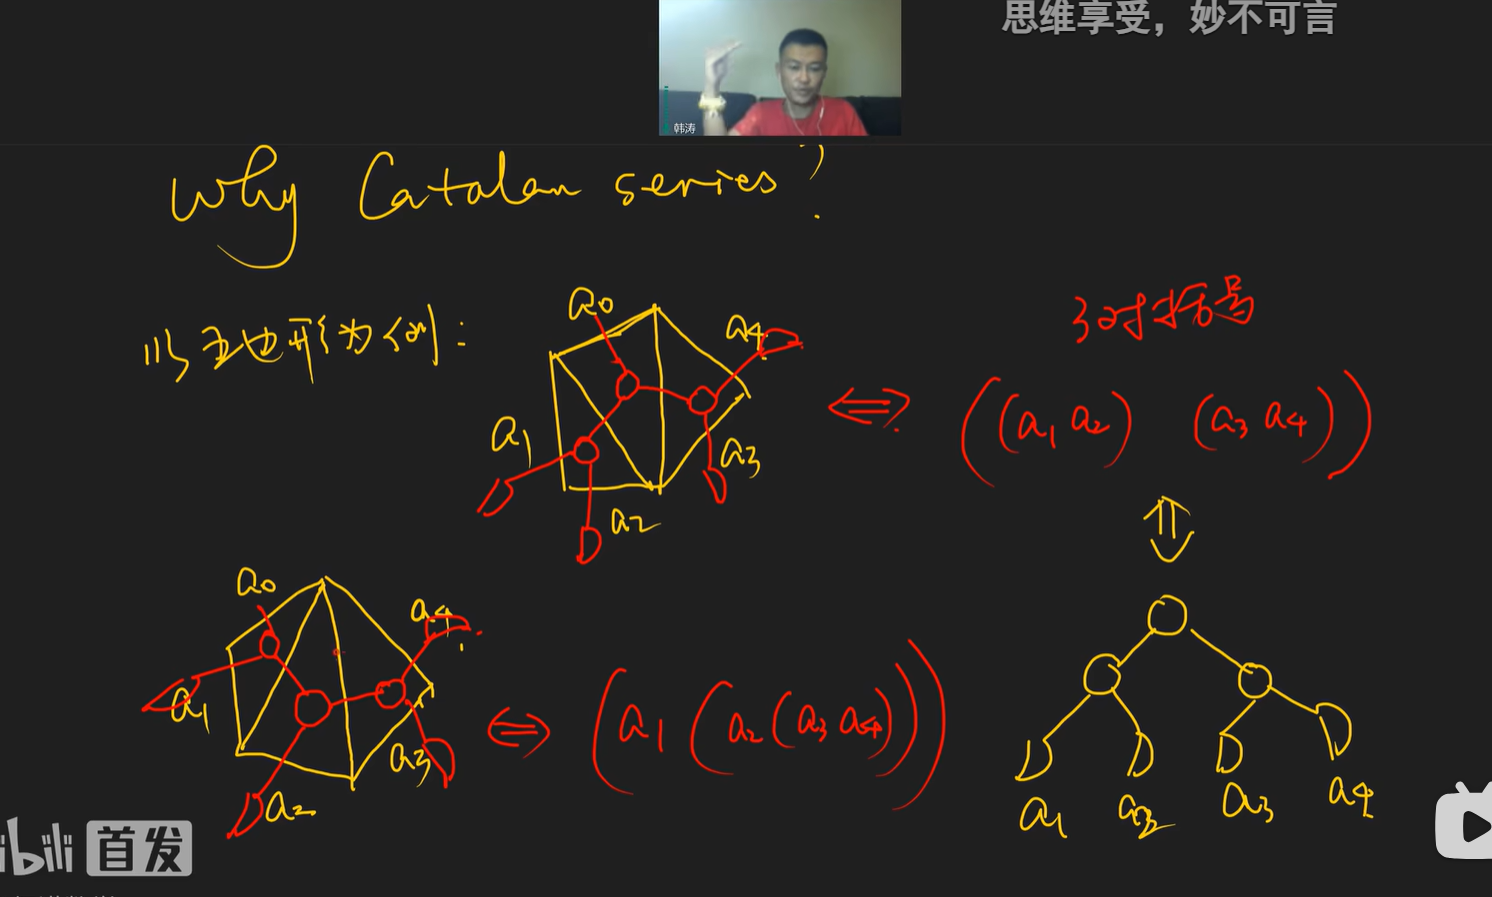 思维享受，妙不可言
韩涛
Why Catalan series?
以五边形为例：
a0
a4
a1
a3
a2
3对括号
⇔
((a1 a2) (a3 a4))
⇕
a0
a4
a1
a3
a2
⇔
(a1(a2(a3 a4)))
a1 a2 a3 a4
ibili 首发